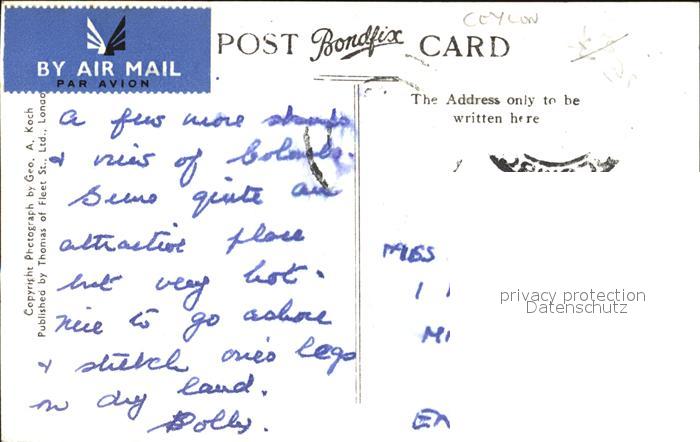 CEYLON
BY AIR MAIL
PAR AVION
POST Bondfix CARD
The Address only to be
written here
Copyright Photograph by Geo. A. Koch
Published by Thomas of Fleet St., Ltd., London
a few more stamps
& view of Colombo.
Seems quite an
attractive place
but very hot.
nice to go ashore
& stretch one's legs
on dry land.
Dolly.
MISS
privacy protection
Datenschutz